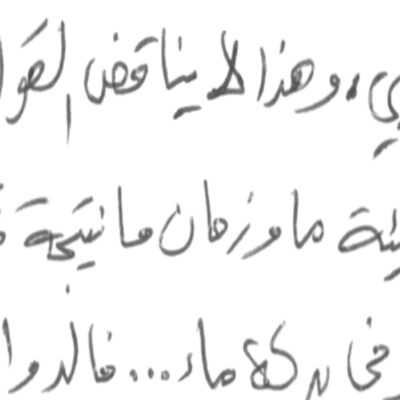 ي، وهذا لا يناقض القوا
يئة ما وزمان ما نتيجة
في بركة ماء... فالدوا